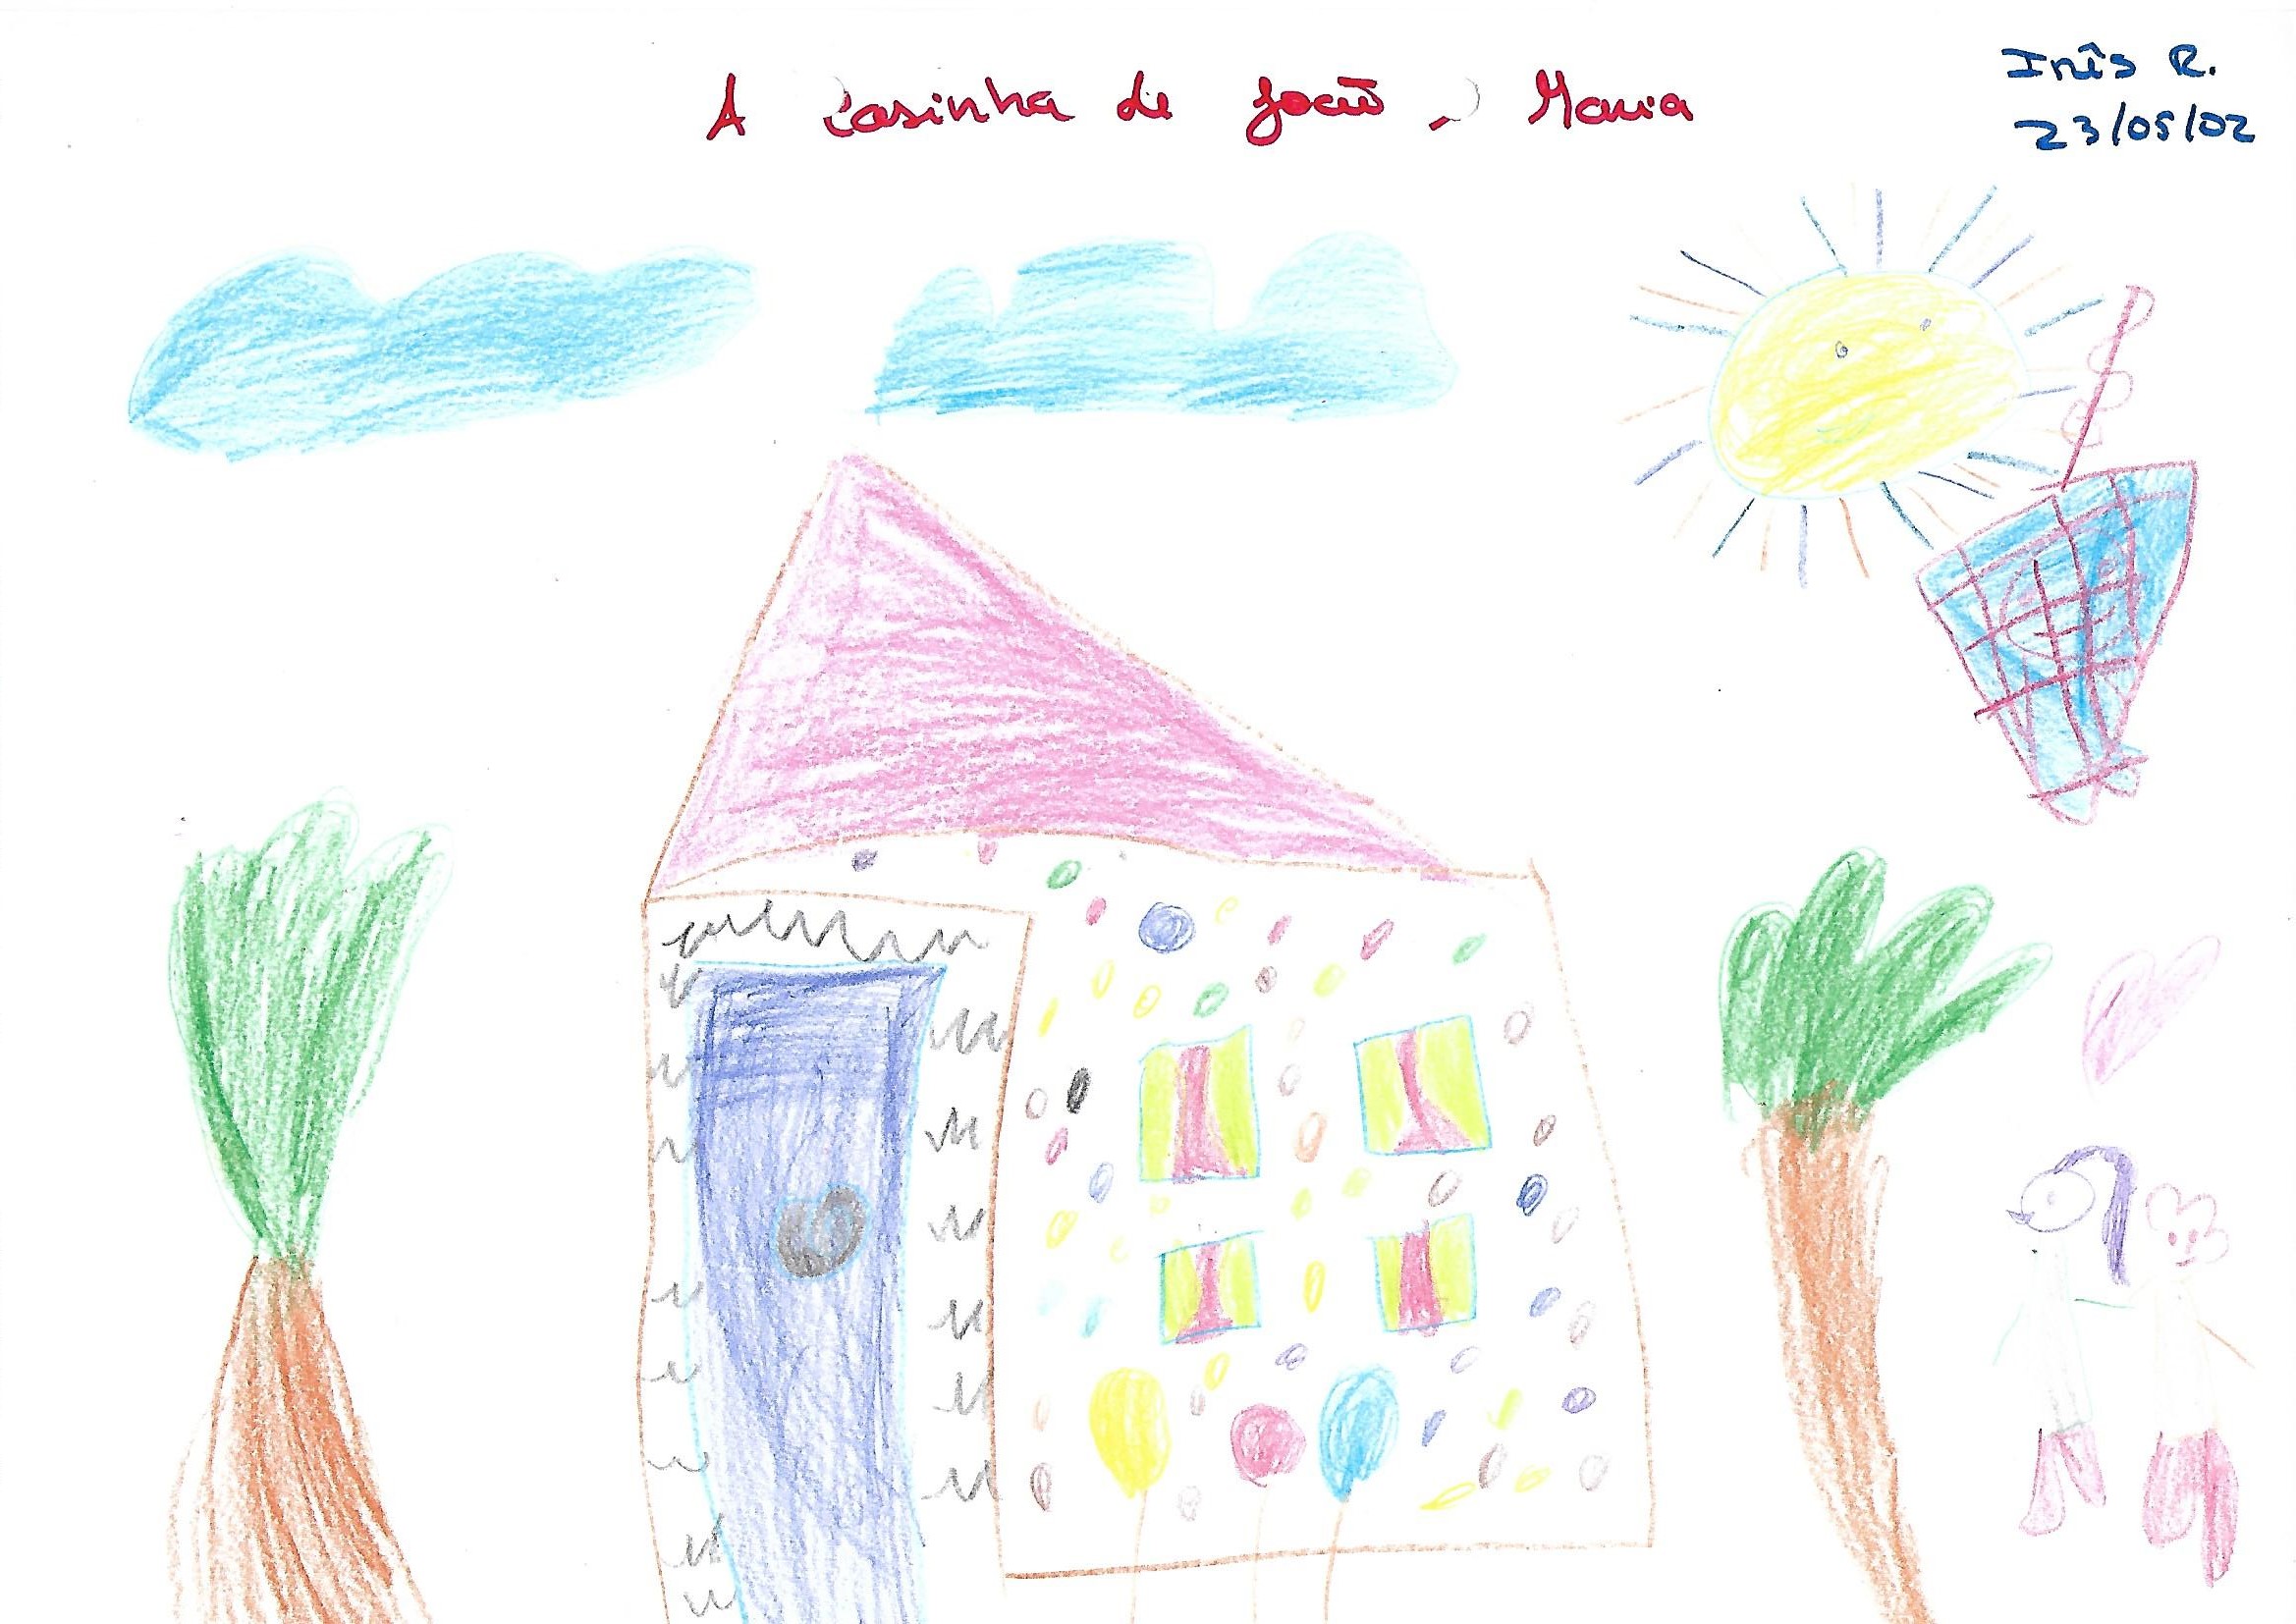 A Casinha de João , Maria
Inês R.
23/05/02